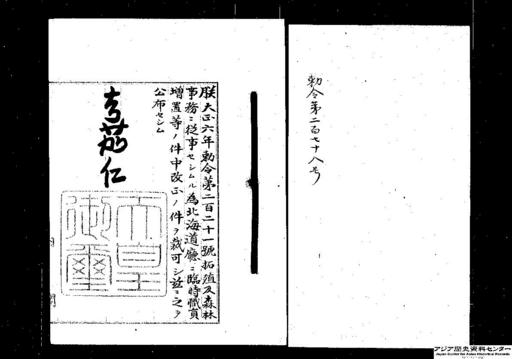 勅令第二百七十八号
朕大正六年勅令第二百二十一號拓殖及森林
事務ニ従事セシムル為北海道廳ニ臨時職員
増置等ノ件中改正ノ件ヲ裁可シ茲ニ之ヲ
公布セシム
嘉仁
天皇御璽
アジア歴史資料センター
Japan Center for Asian Historical Records